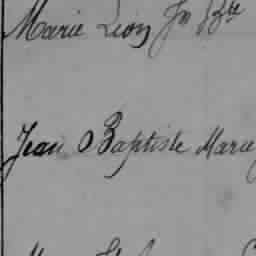 Marie Léon Jn Bte
Jean Baptiste Marie